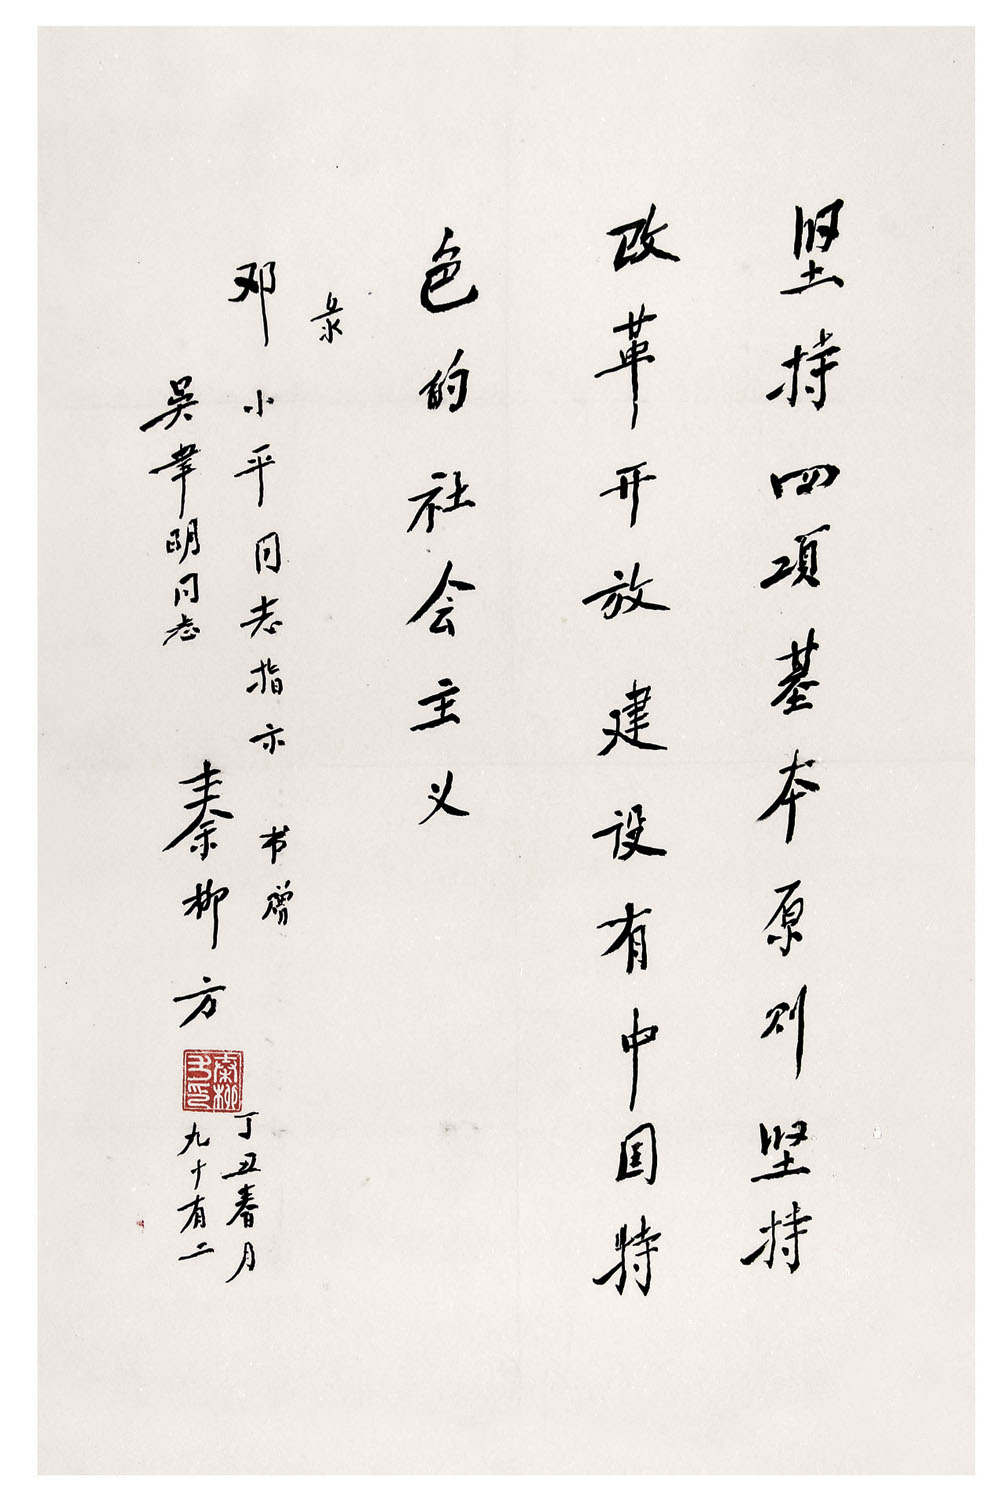 坚持四项基本原则坚持
改革开放建设有中国特
色的社会主义
录
邓小平同志指示 书赠
吴韦明同志
秦柳方
秦柳方印
丁丑春月
九十有二